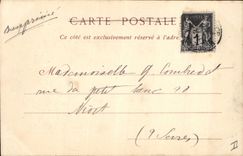 CARTE POSTALE
Ce côté est exclusivement réservé à l'adresse
Mademoiselle G. Combedet
rue du petit banc 22
Niort
(2 Sèvres)